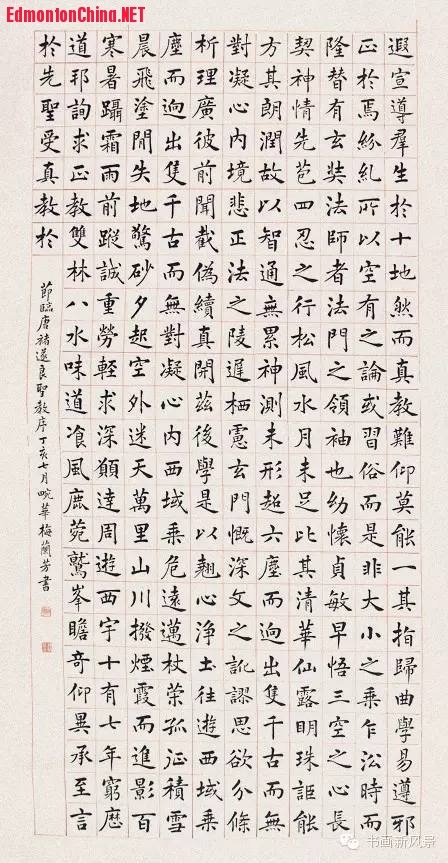 EdmontonChina.NET
遐宣導羣生於十地然而真教難仰莫能一其指歸曲學易遵邪
正於焉紛糺所以空有之論或習俗而是非大小之乘乍沿時而
隆替有玄奘法師者法門之領袖也幼懷貞敏早悟三空之心長
契神情先苞四忍之行松風水月未足比其清華仙露明珠詎能
方其朗潤故以智通無累神測未形超六塵而逈出隻千古而無
對凝心內境悲正法之陵遲栖慮玄門慨深文之訛謬思欲分條
析理廣彼前聞截偽續真開茲後學是以翹心淨土往遊西域乘
塵而逈出隻千古而無對凝心內西域乘危遠邁杖策孤征積雪
晨飛塗閒失地驚砂夕起空外迷天萬里山川撥煙霞而進影百
寒暑躡霜雨前蹤誠重勞輕求深願達周遊西宇十有七年窮歷
道邦詢求正教雙林八水味道飡風鹿菀鷲峯瞻奇仰異承至言
於先聖受真教於
節臨唐褚遂良聖教序丁亥七月畹華梅蘭芳書
书画新风景